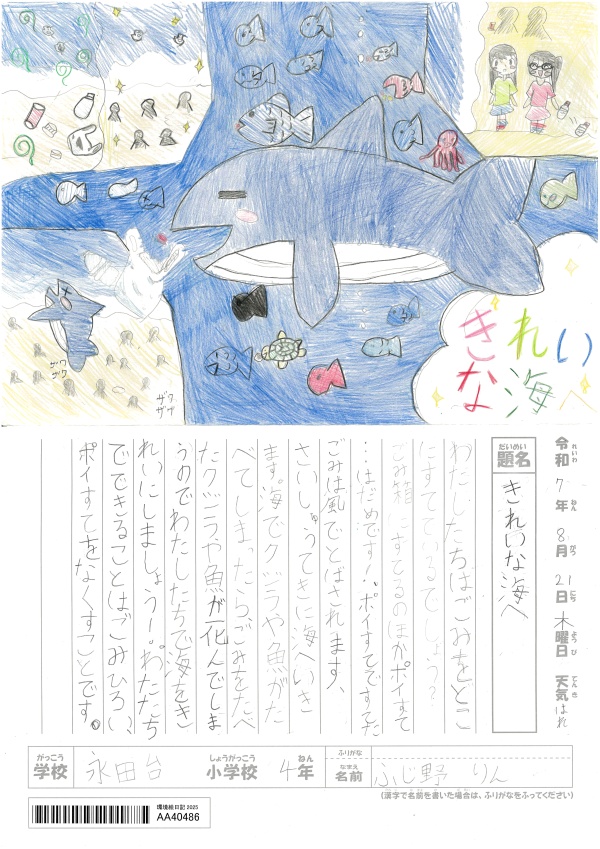 きれいな海へ
ザワ
ザワ
ザワ
ザザ
令和 7年 8月 21日 木曜日 天気 はれ
れいわ ねん がつ にち ようび てんき
だいめい
題名
きれいな海へ
わたしたちはごみをどこ
にすてているでしょう?
ごみ箱にすてるのほかポイすて
…はだめです!、ポイすてですてた
ごみは風でとばされます、
さいしゅうてきに海へいき
ます。海でクジラや魚がた
べてしまったら、ごみをたべ
たクジラや魚が死んでしま
うのでわたしたちで海をき
れいにしましょうー。わたたち
でできることはごみひろい、
ポイすてをなくすことです。
がっこう しょうがっこう ねん ふりがな
学校 永田台 小学校 4年
なまえ
名前 ふじ野 りん
(漢字で名前を書いた場合は、ふりがなをふってください)
環境絵日記 2025
AA40486